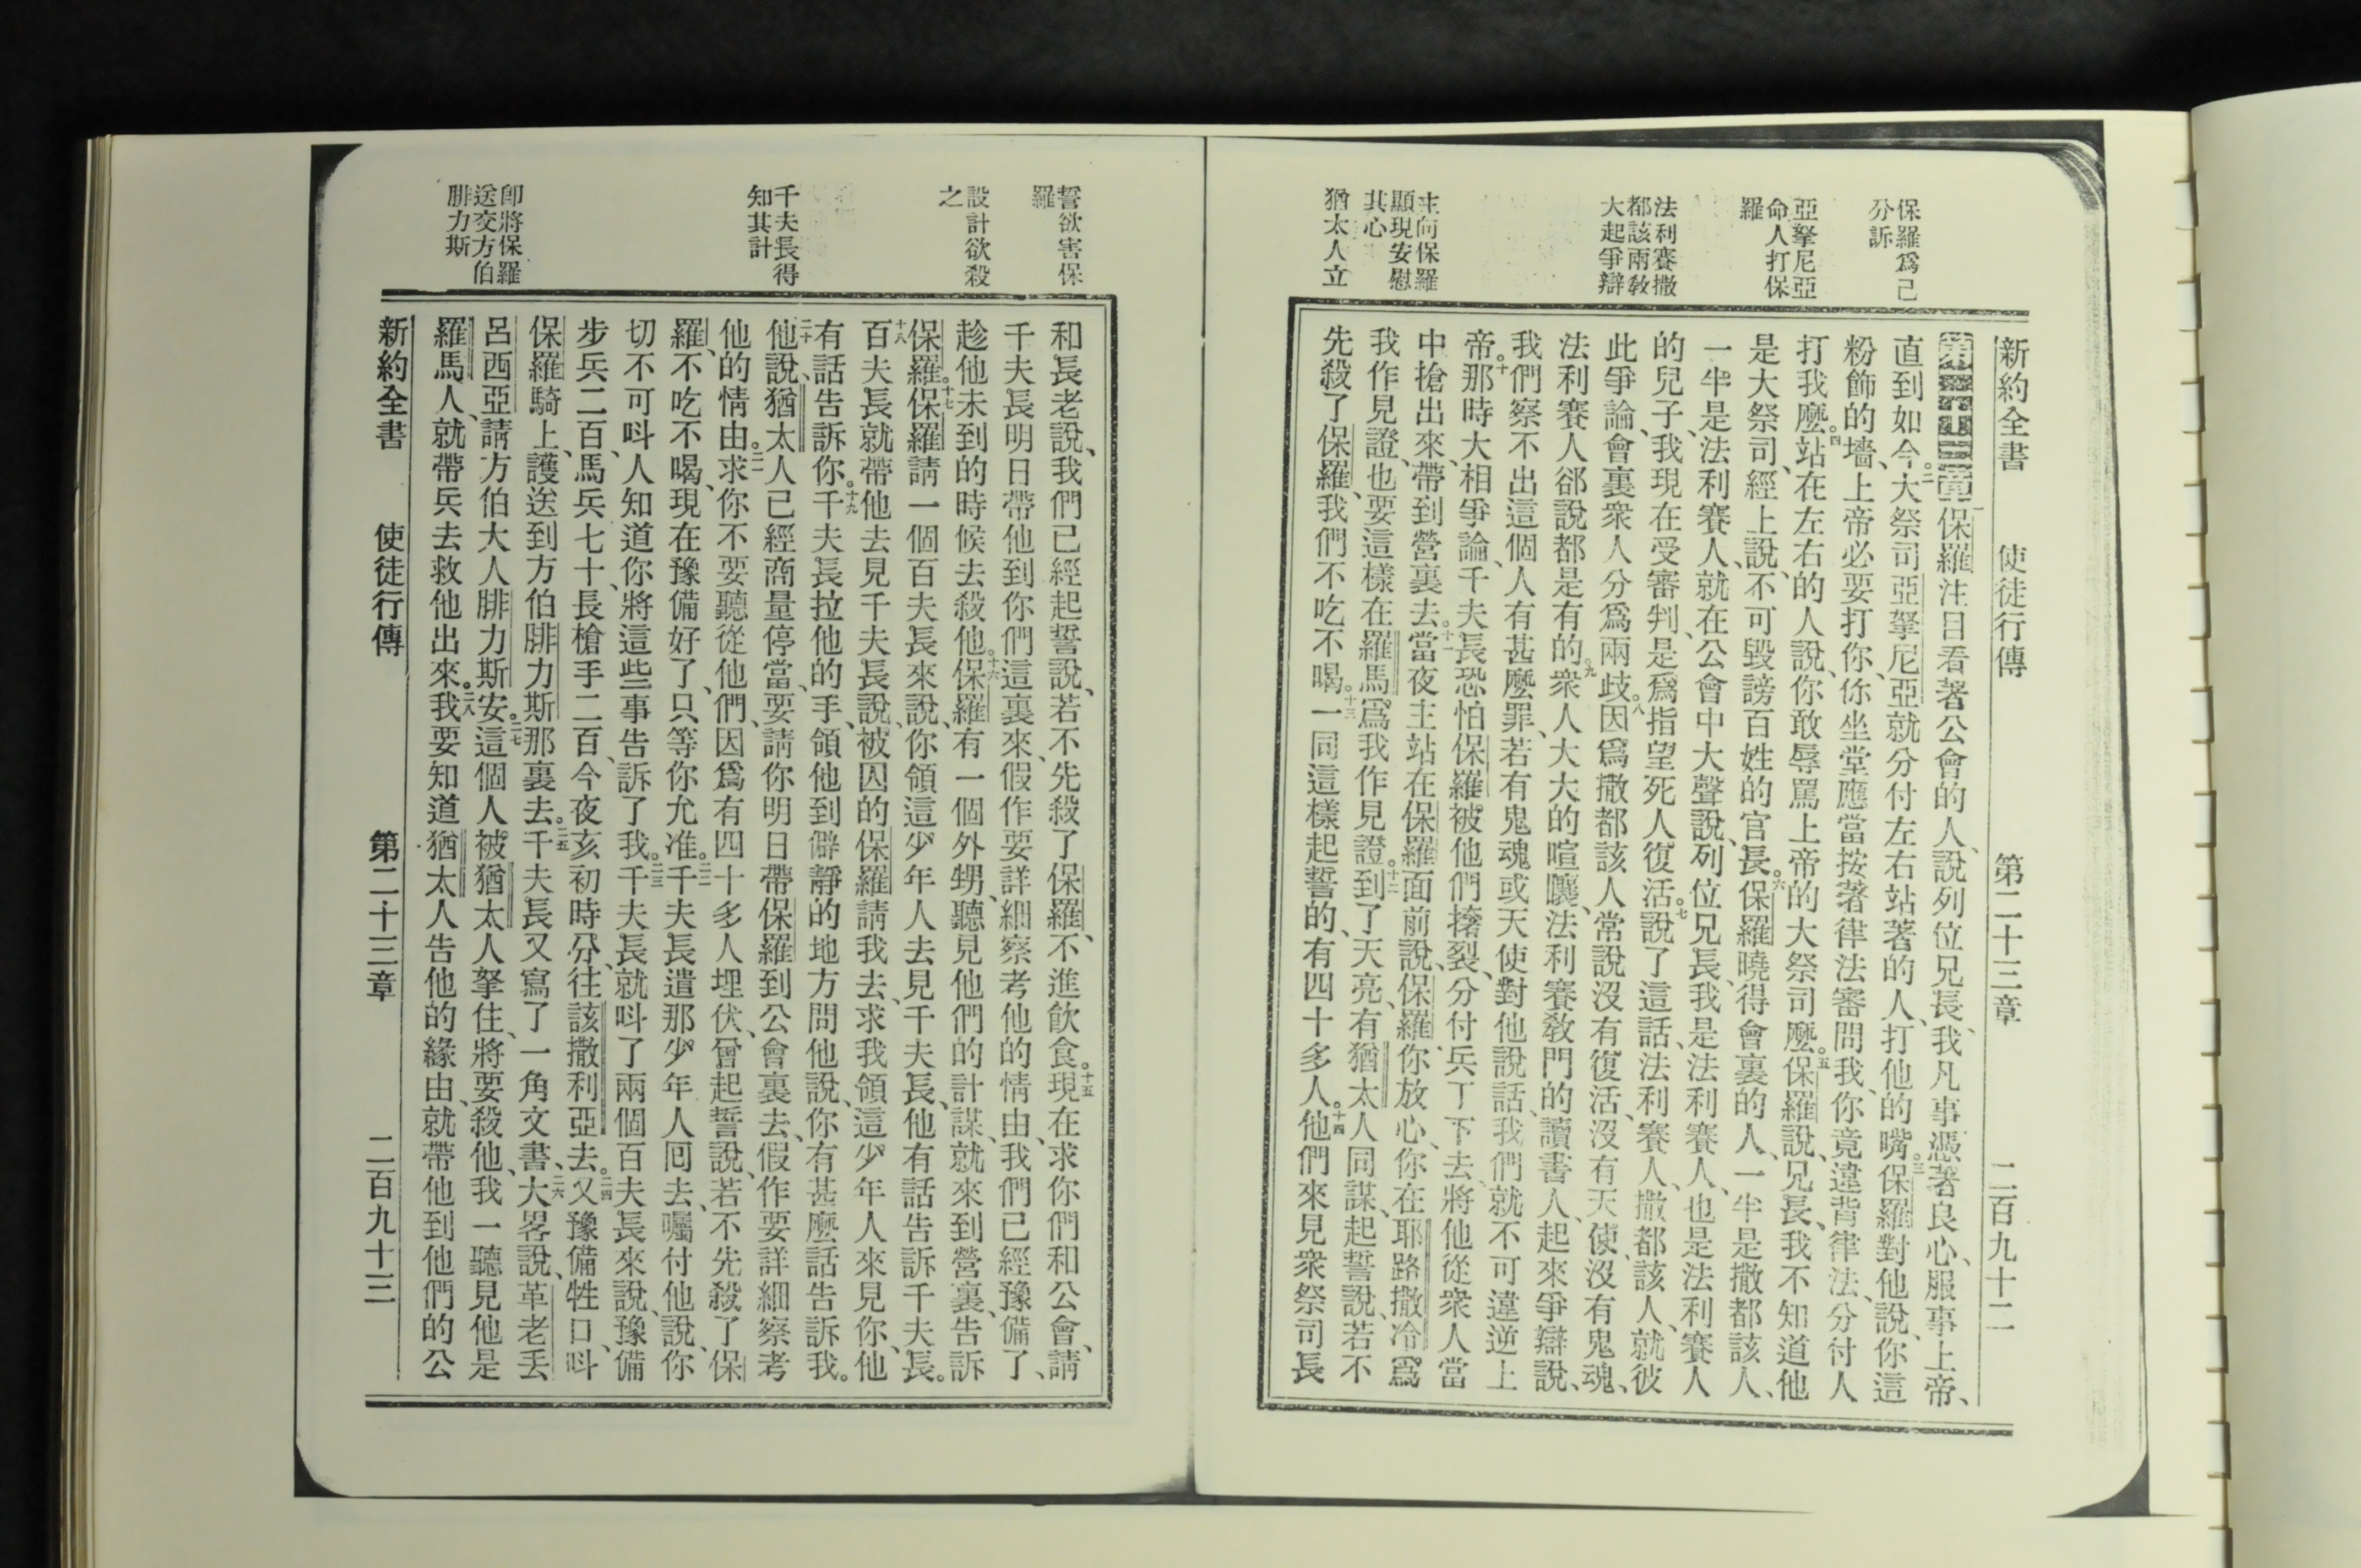 新約全書　使徒行傳　第二十三章　二百九十二
保羅爲己
分訴
亞拏尼亞
命人打保
羅
法利賽撒
都該兩敎
大起爭辯
主向保羅
顯現安慰
其心
猶太人立
第二十三章保羅注目看著公會的人、說列位兄長、我凡事憑著良心、服事上帝、
直到如今。二大祭司亞拏尼亞就分付左右站著的人、打他的嘴。三保羅對他說、你這
粉飾的墻、上帝必要打你、你坐堂應當按著律法審問我、你竟違背律法、分付人
打我麽。四站在左右的人說、你敢辱罵上帝的大祭司麽。五保羅說、兄長、我不知道他
是大祭司、經上說、不可毀謗百姓的官長。六保羅曉得會裏的人、一半是撒都該人、
一半是法利賽人、就在公會中大聲說、列位兄長、我是法利賽人、也是法利賽人
的兒子、我現在受審判、是爲指望死人復活。七說了這話、法利賽人、撒都該人、就彼
此爭論、會裏衆人分爲兩歧。八因爲撒都該人常說沒有復活、沒有天使、沒有鬼魂、
法利賽人郤說都是有的。九衆人大大的喧嚷、法利賽敎門的讀書人、起來爭辯說、
我們察不出這個人有甚麽罪、若有鬼魂或天使對他說話、我們就不可違逆上
帝。十那時大相爭論、千夫長恐怕保羅被他們撦裂、分付兵丁下去、將他從衆人當
中搶出來、帶到營裏去。十一當夜主站在保羅面前說、保羅、你放心、你在耶路撒冷爲
我作見證、也要這樣在羅馬爲我作見證。十二到了天亮、有猶太人同謀、起誓說、若不
先殺了保羅、我們不吃不喝。十三一同這樣起誓的、有四十多人。十四他們來見衆祭司長
誓欲害保
羅
設計欲殺
之
千夫長得
知其計
卽將保羅
送交方伯
腓力斯
和長老說、我們已經起誓說、若不先殺了保羅、不進飮食。十五現在求你們和公會、請
千夫長明日帶他到你們這裏來、假作要詳細察考他的情由、我們已經豫備了、
趁他未到的時候去殺他。十六保羅有一個外甥、聽見他們的計謀、就來到營裏、告訴
保羅。十七保羅請一個百夫長來說、你領這少年人去見千夫長、他有話告訴千夫長。
十八百夫長就帶他去見千夫長說、被囚的保羅請我去、求我領這少年人來見你、他
有話告訴你。十九千夫長拉他的手、領他到僻靜的地方問他說、你有甚麽話告訴我。
二十他說、猶太人已經商量停當、要請你明日帶保羅到公會裏去、假作要詳細察考
他的情由。二一求你不要聽從他們、因爲有四十多人埋伏、曾起誓說、若不先殺了保
羅、不吃不喝、現在豫備好了、只等你允准。二二千夫長遣那少年人囘去、囑付他說、你
切不可呌人知道你將這些事告訴了我。二三千夫長就呌了兩個百夫長來說、豫備
步兵二百、馬兵七十、長槍手二百、今夜亥初時分、往該撒利亞去。二四又豫備牲口、呌
保羅騎上、護送到方伯腓力斯那裏去。二五千夫長又寫了一角文書、二六大畧說、革老丢
呂西亞、請方伯大人腓力斯安。二七這個人被猶太人拏住、將要殺他、我一聽見他是
羅馬人、就帶兵去救他出來。二八我要知道猶太人告他的緣由、就帶他到他們的公
新約全書　使徒行傳　第二十三章　二百九十三